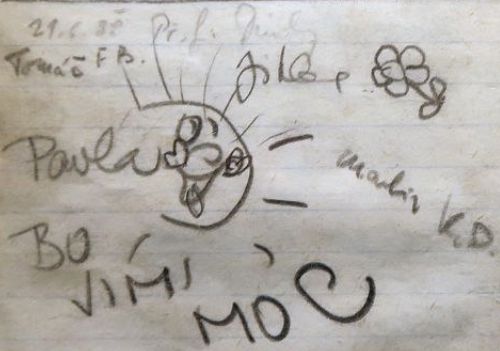 Tomáš F B.
Jitka
Pavla
Martin K.D.
BO
VIMI
MOC